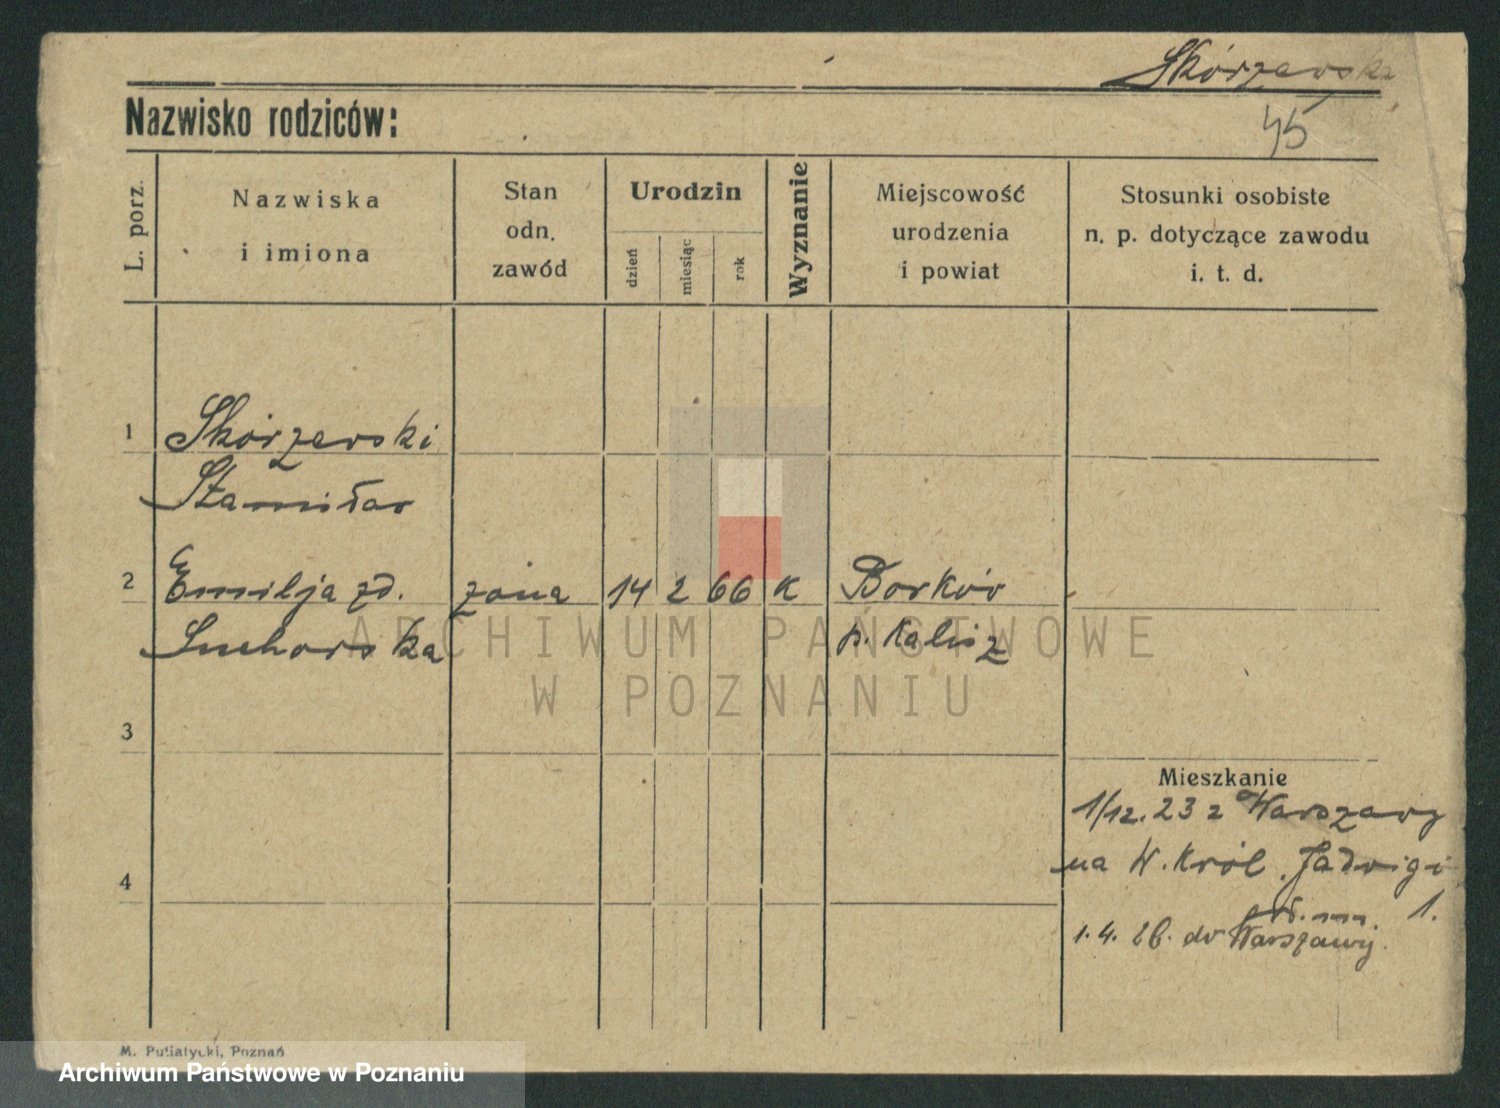 Skórzewska
45
Nazwisko rodziców:
L. porz.
Nazwiska
i imiona
Stan
odn.
zawód
Urodzin
dzień
miesiąc
rok
Wyznanie
Miejscowość
urodzenia
i powiat
Stosunki osobiste
n. p. dotyczące zawodu
i. t. d.
1 Skórzewski
Stanisław
2 Emilja zd. żona 14 2 66 K Borków
Suchorska p. Kalisz
3
4
Mieszkanie
1/12. 23 z Warszawy
na W. Król. Jadwigi
1.
1. 4. 26. do Warszawy.
M. Putiatycki, Poznań
ARCHIWUM PAŃSTWOWE
W POZNANIU
Archiwum Państwowe w Poznaniu